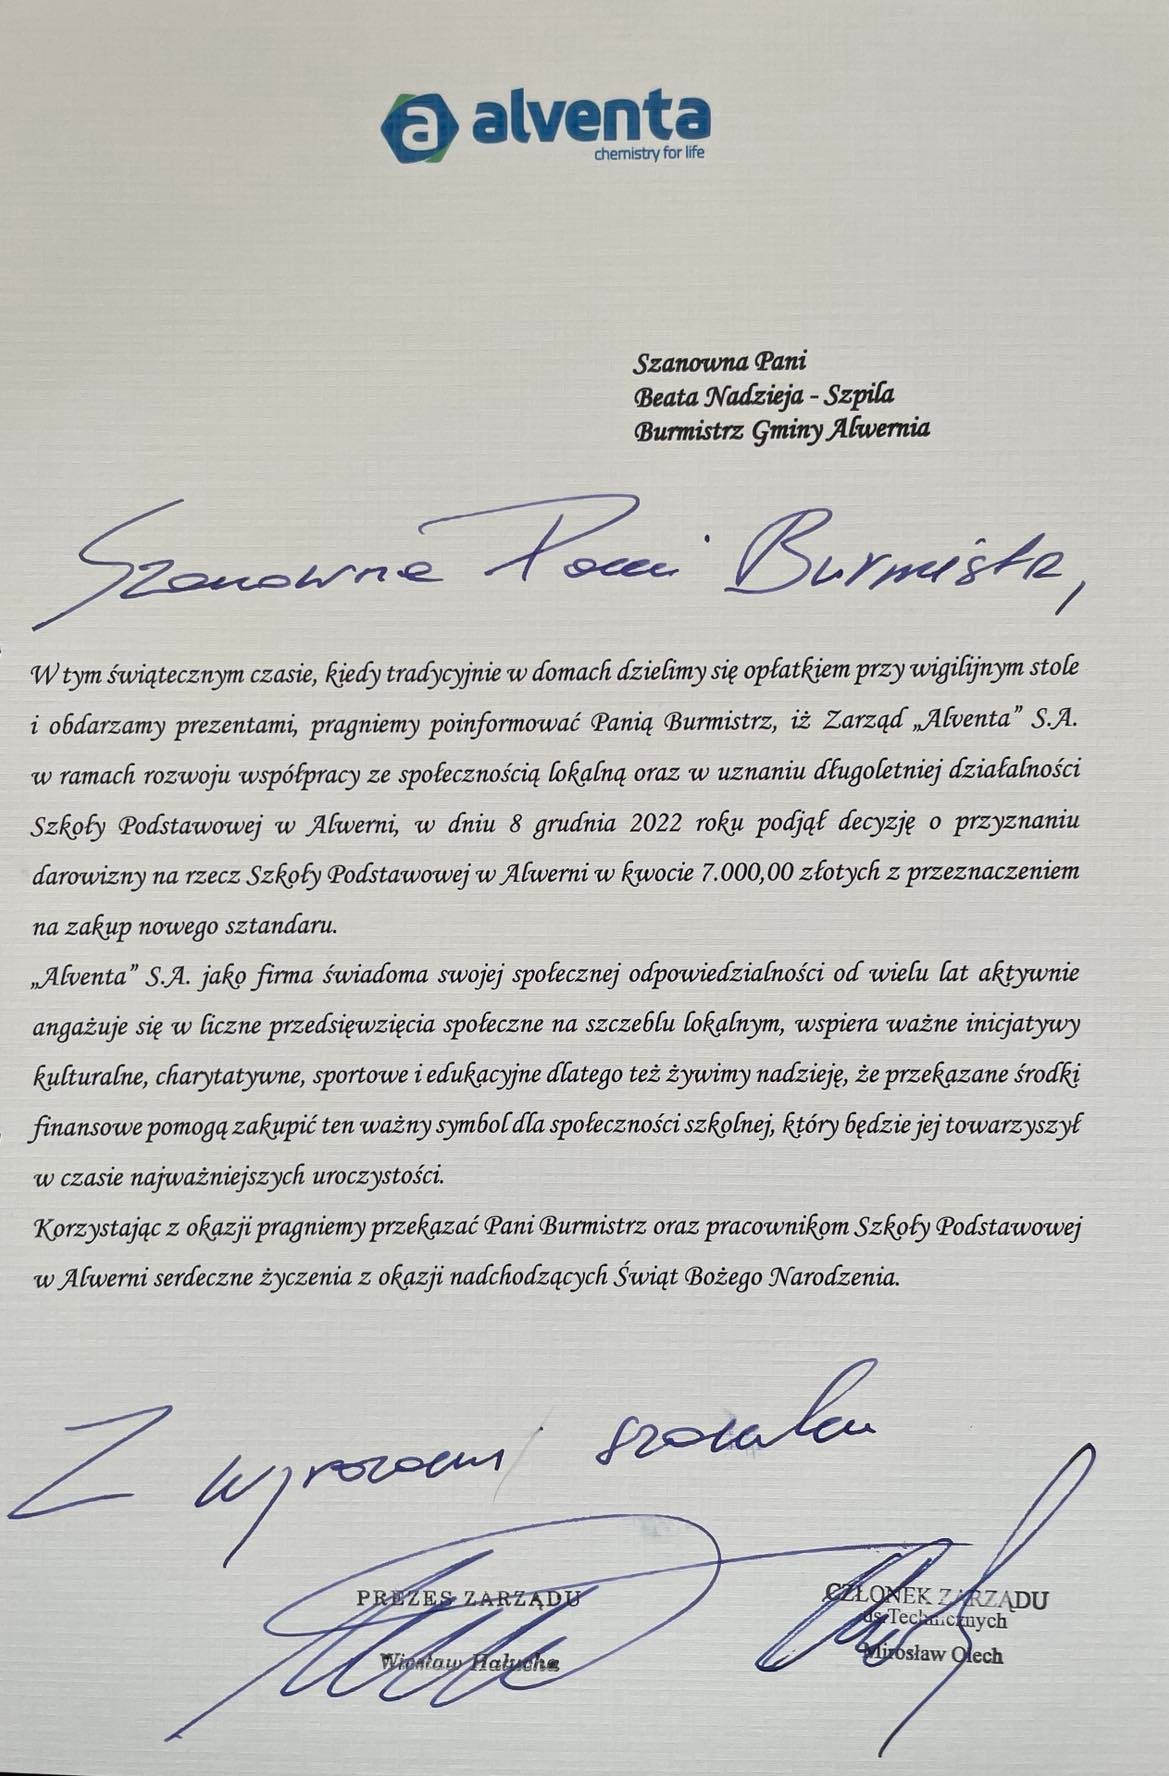 a alventa
chemistry for life
Szanowna Pani
Beata Nadzieja - Szpila
Burmistrz Gminy Alwernia
Szanowna Pani Burmistrz,
W tym świątecznym czasie, kiedy tradycyjnie w domach dzielimy się opłatkiem przy wigilijnym stole
i obdarzamy prezentami, pragniemy poinformować Panią Burmistrz, iż Zarząd „Alventa” S.A.
w ramach rozwoju współpracy ze społecznością lokalną oraz w uznaniu długoletniej działalności
Szkoły Podstawowej w Alwerni, w dniu 8 grudnia 2022 roku podjął decyzję o przyznaniu
darowizny na rzecz Szkoły Podstawowej w Alwerni w kwocie 7.000,00 złotych z przeznaczeniem
na zakup nowego sztandaru.
„Alventa” S.A. jako firma świadoma swojej społecznej odpowiedzialności od wielu lat aktywnie
angażuje się w liczne przedsięwzięcia społeczne na szczeblu lokalnym, wspiera ważne inicjatywy
kulturalne, charytatywne, sportowe i edukacyjne dlatego też żywimy nadzieję, że przekazane środki
finansowe pomogą zakupić ten ważny symbol dla społeczności szkolnej, który będzie jej towarzyszył
w czasie najważniejszych uroczystości.
Korzystając z okazji pragniemy przekazać Pani Burmistrz oraz pracownikom Szkoły Podstawowej
w Alwerni serdeczne życzenia z okazji nadchodzących Świąt Bożego Narodzenia.
Z wyrazami szacunku
PREZES ZARZĄDU
Wiesław Hałucha
CZŁONEK ZARZĄDU
ds Technicznych
Mirosław Olech